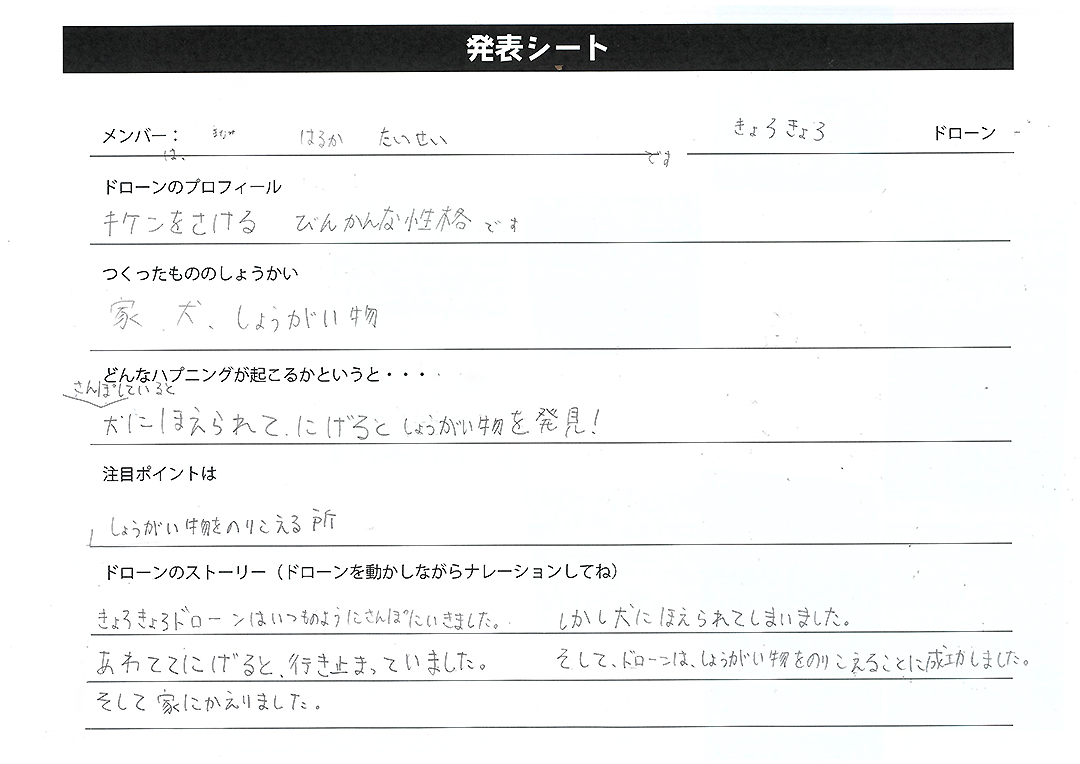 発表シート
メンバー： まなや はるか たいせい きょろきょろ ドローン
は、 です
ドローンのプロフィール
キケンをさける びんかんな性格です
つくったもののしょうかい
家、犬、しょうがい物
どんなハプニングが起こるかというと・・・
さんぽしていると
犬にほえられて、にげるとしょうがい物を発見!
注目ポイントは
しょうがい物をのりこえる所
ドローンのストーリー（ドローンを動かしながらナレーションしてね）
きょろきょろドローンはいつものようにさんぽにいきました。 しかし犬にほえられてしまいました。
あわててにげると、行き止まっていました。 そして、ドローンは、しょうがい物をのりこえることに成功しました。
そして家にかえりました。